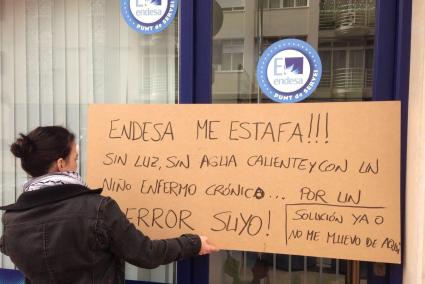 endesa
PUNT de SERVEI
E
endesa
PUNT de SERVEI
ENDESA ME ESTAFA!!!
SIN LUZ, SIN AGUA CALIENTE Y CON UN
NIÑO ENFERMO CRÓNICO... POR UN
ERROR SUYO!
SOLUCIÓN YA O
NO ME MUEVO DE AQUÍ